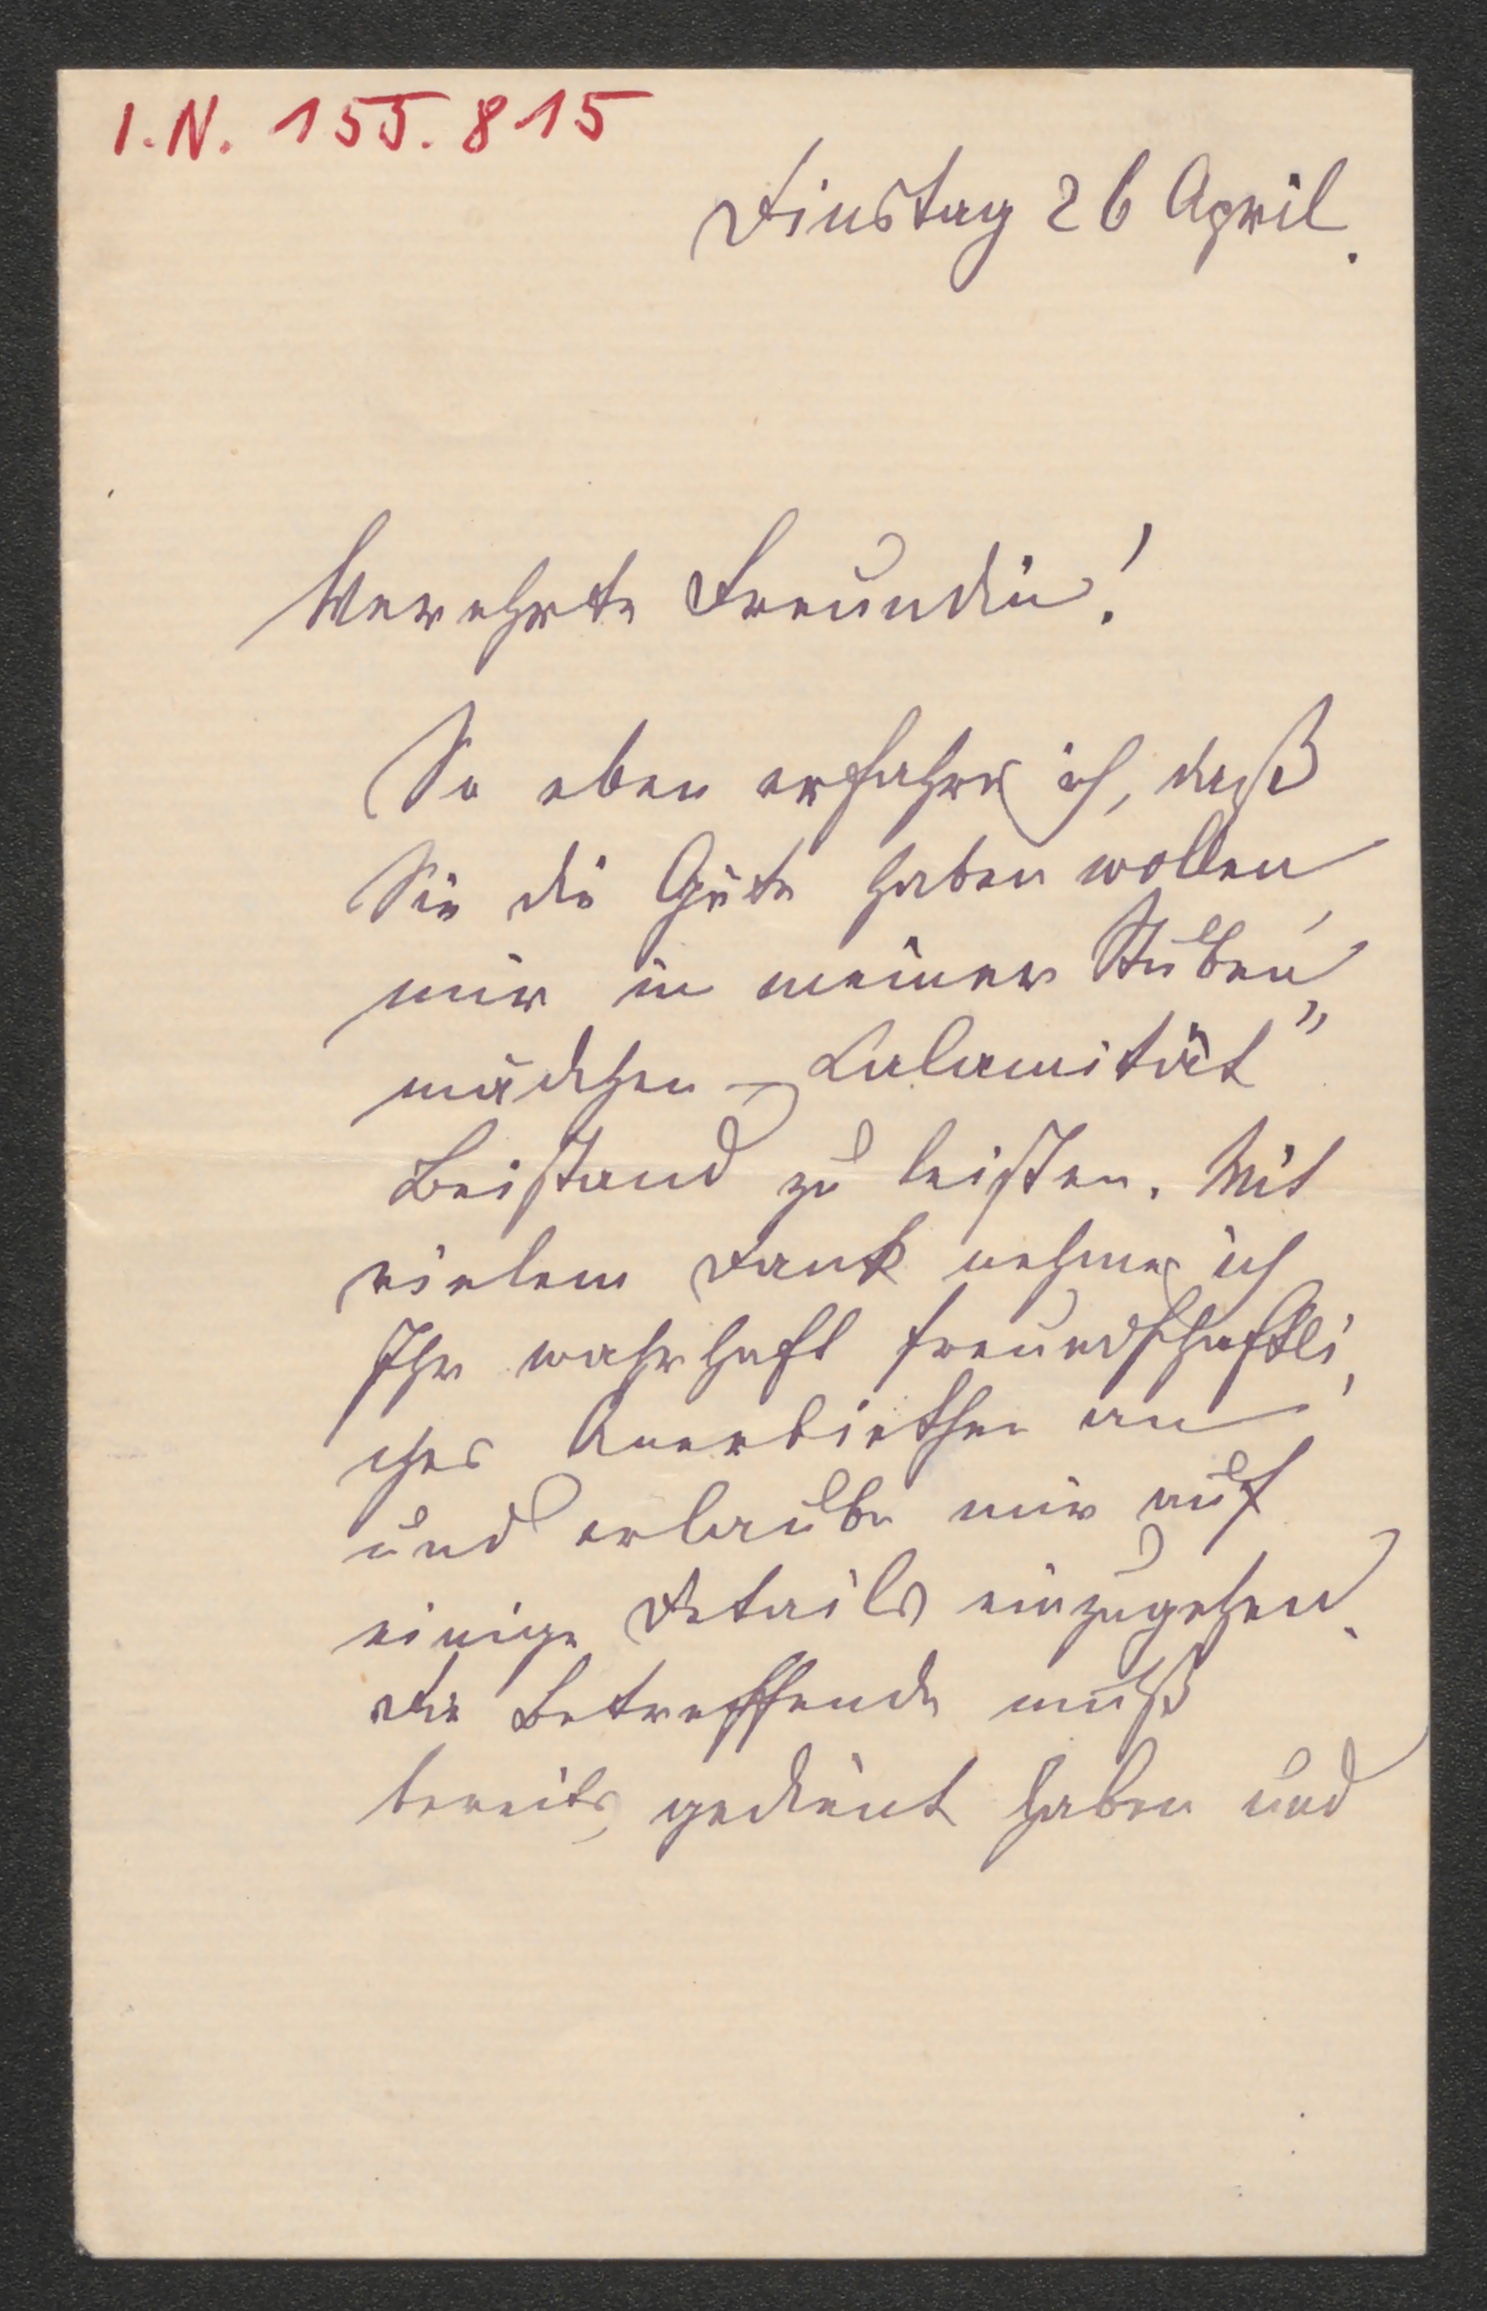 I.N. 155.815
Dinstag 26 April.
Verehrte Freundin!
So eben erfahre ich, daß
Sie die Güte haben wollen
mir in meiner Stuben,,
mädchen-Calamität"
Beistand zu leisten. Mit
vielem Dank nehme ich
Ihr wahrhaft freundschaftli,
ches Anerbiethen an
und erlaube mir auf
einige Details einzugehen.
Die Betreffende muß
bereits gedient haben und